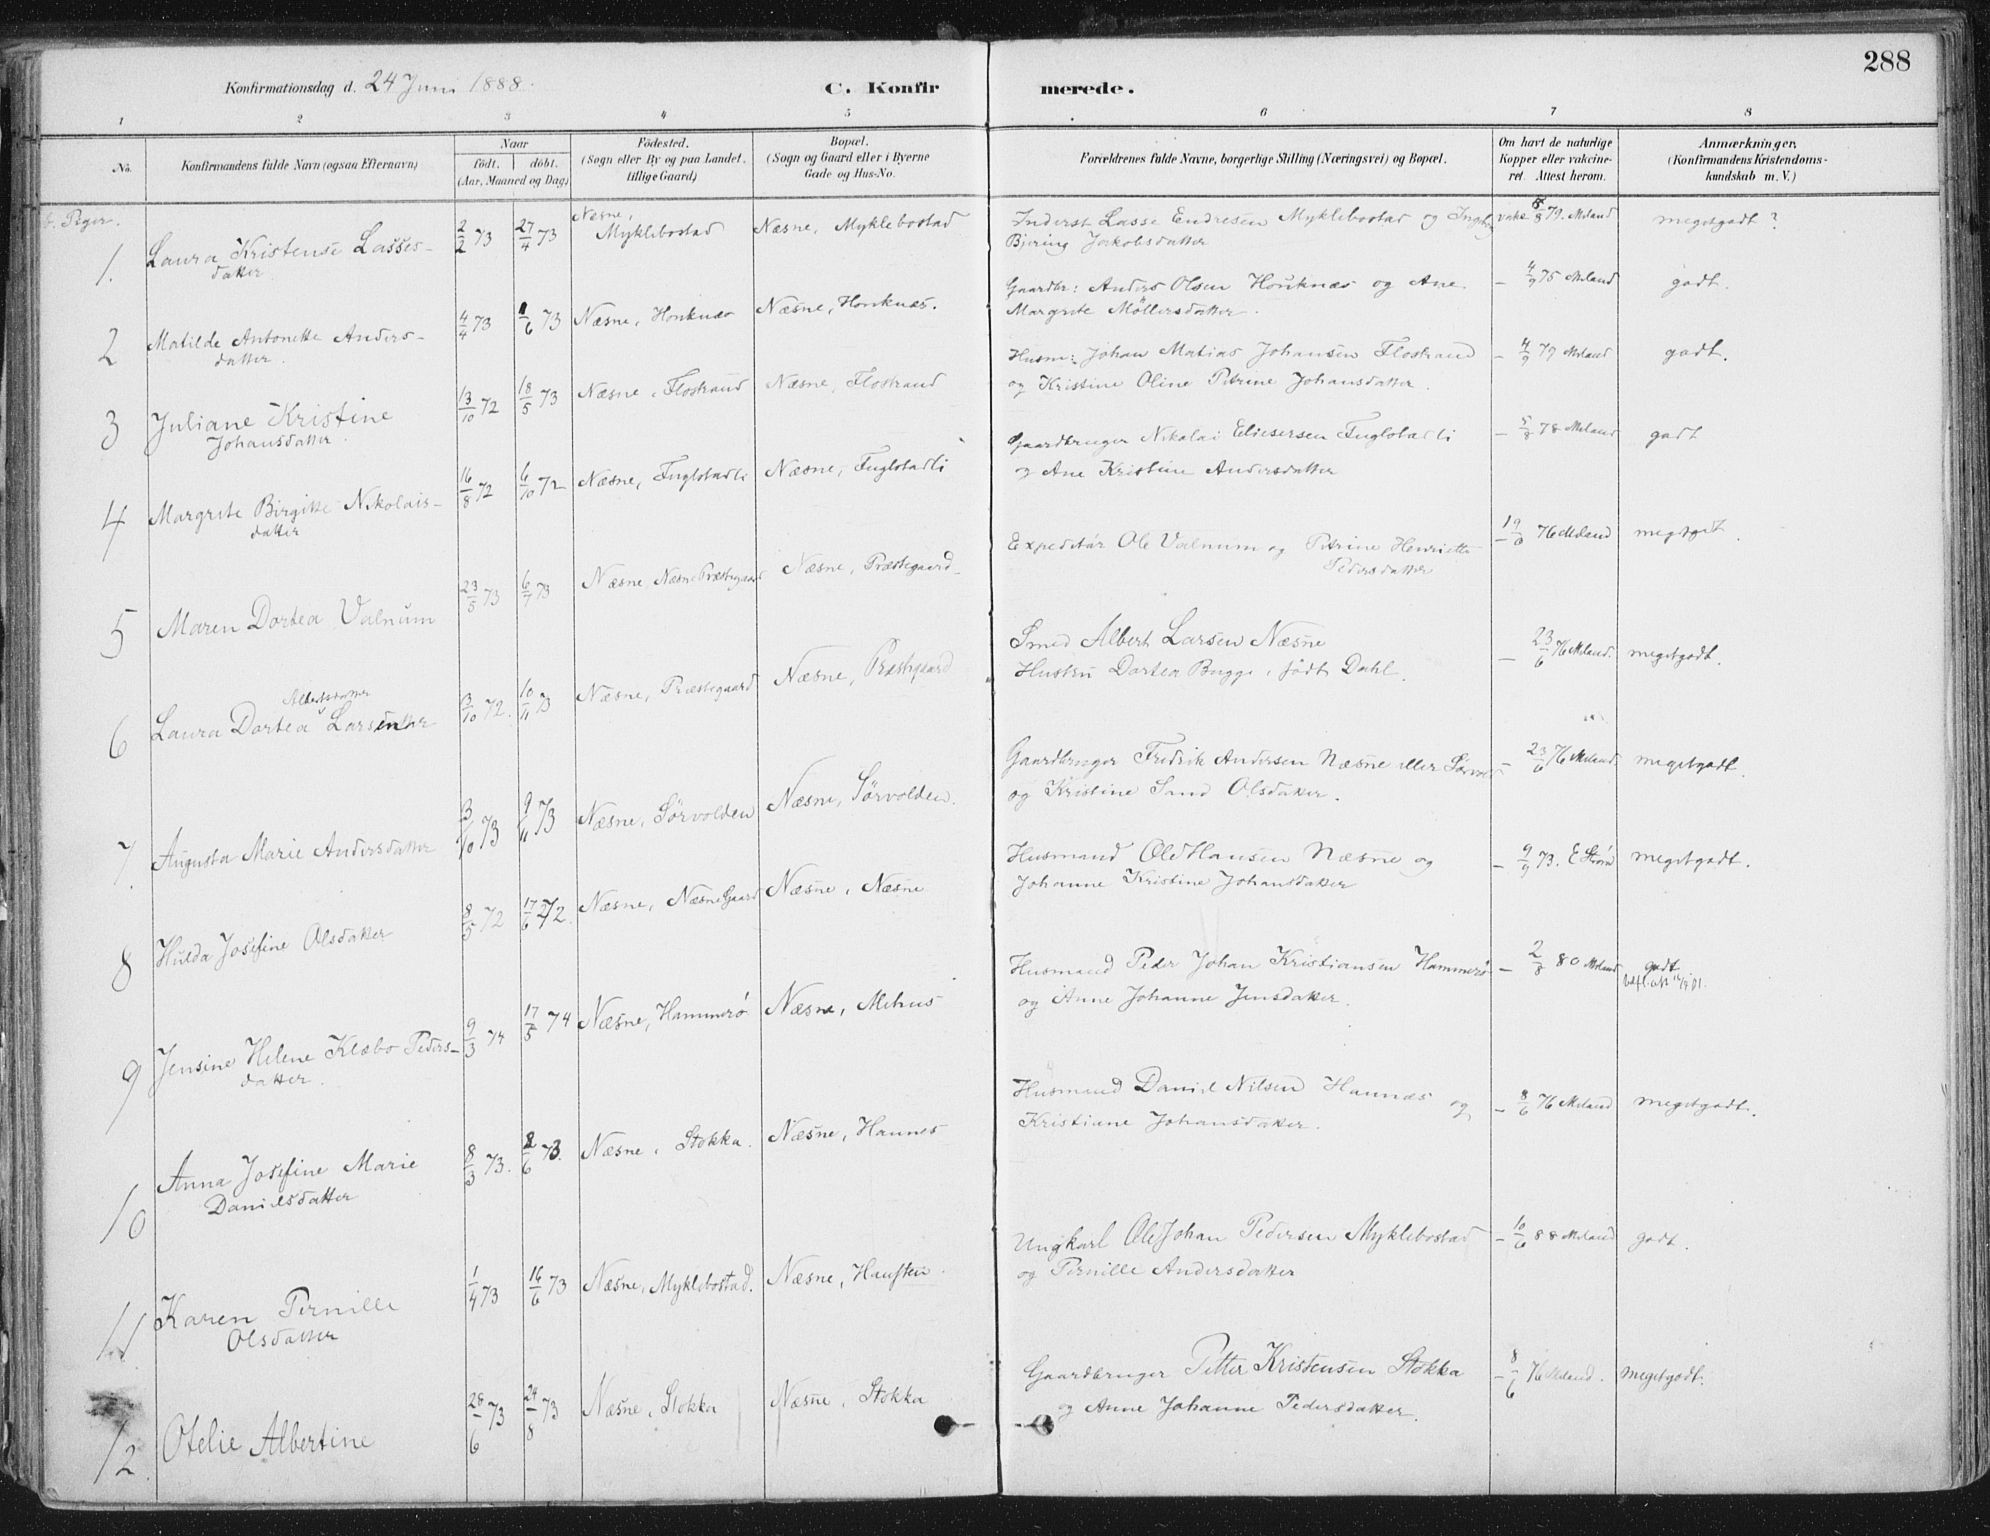 288
Konfirmationsdag d. 24 Juni 1888.
C. Konfirmerede.
1 2 3 4 5 6 7 8
No.
Konfirmandens fulde Navn (ogsaa Efternavn)
Naar
födt. döbt.
(Aar, Maaned og Dag)
Födested.
(Sogn eller By og paa Landet, tillige Gaard)
Bopæl.
(Sogn og Gaard eller i Byerne Gade og Hus-No.
Forældrenes fulde Navne, borgerlige Stilling (Næringsvei) og Bopæl.
Om havt de naturlige Kopper eller vakcineret. Attest herom.
Anmærkninger,
(Konfirmandens Kristendomskundskab m. V.)
b. Piger.
1. Laura Kristense Lassesdatter 2/2 73 27/4 73 Næsne, Myklebostad Næsne, Myklebostad
Inderst Lasse Endresen Myklebostad og
Bjering Jakobsdatter
vakc 8/8 79. Meland megetgodt?
2 Matilde Antonette Andersdatter. 4/4 73 1/6 73 Næsne, Honknæs Næsne, Honknæs.
Gaardbr: Anders Olsen Honknæs og Ane
Margrete Möllersdatter.
– 4/9 75 Meland godt.
3 Juliane Kristine Johansdatter. 13/10 72 18/5 73 Næsne, Flostrand Næsne, Flostrand
Husm: Johan Matias Johansen Flostrand
og Kristine Oline Petrine Johansdatter.
– 4/9 79 Meland godt.
4 Margrete Birgitte Nikolaisdatter 16/8 72 6/10 72 Næsne, Fuglstadli Næsne, Fuglstadli
Gaardbruger Nikolai Eliesersen Fuglstadli
og Ane Kristine Andersdatter
– 5/8 78 Meland godt
5 Maren Dortea Valnum 23/5 73 6/7 73 Næsne, Næsne Præstegaard Næsne, Præstegaard
Expeditör Ole Valnum og Petrine Henriette
Pedersdatter
– 76 Meland megetgodt.
6 Laura Dortea Larsen 3/10 72. 10/11 73 Næsne, Præstegaard Næsne, Præstegaard
Albertsdatter
Smed Albert Larsen Næsne
Hustru Dortea Bugge, födt Dahl.
– 23/6 76 Meland. megetgodt.
7. Augusta Marie Andersdatter 3/10 73 9/11 73 Næsne, Sörvolden Næsne, Sörvolden.
Gaardbruger Fredrik Andersen Næsne eller
og Kristine Sand Olsdatter.
– 23/6 76 Meland. megetgodt.
8 Hulda Josefine Olsdatter 8/5 72 17/6 72. Næsne, Næsne Gaard Næsne, Næsne
Husmand Ole Hansen Næsne og
Johanne Kristine Johansdatter
– 9/9 73. E Ström megetgodt.
9 Jensine Helene Klæbo Pedersdatter. 9/3 74 17/5 74 Næsne, Hammerö Næsne, Mehus
Husmand Peder Johan Kristiansen Hammerö
og Anne Johanne Jensdatter.
– 2/8 80 Meland godt
10 Anna Josefine Marie Danielsdatter 8/3 73. 2/6 73. Næsne, Stokka. Næsne, Hannes
Husmand Daniel Nilsen Hannæs og
Kristiane Johansdatter.
– 8/6 76 Meland megetgodt.
11 Karen Pernille Olsdatter 1/4 73 16/6 73 Næsne, Myklebostad. Næsne, Hauften.
Ungkarl Ole Johan Pedersen Myklebostad
og Pernille Andersdatter
– 10/6 88 Meland godt.
12. Otelie Albertine 28/6 73 24/8 73 Næsne, Stokka Næsne, Stokka
Gaardbruger Petter Kristensen Stokka
og Anne Johanne Pedersdatter.
– 8/6 76 Meland. megetgodt.